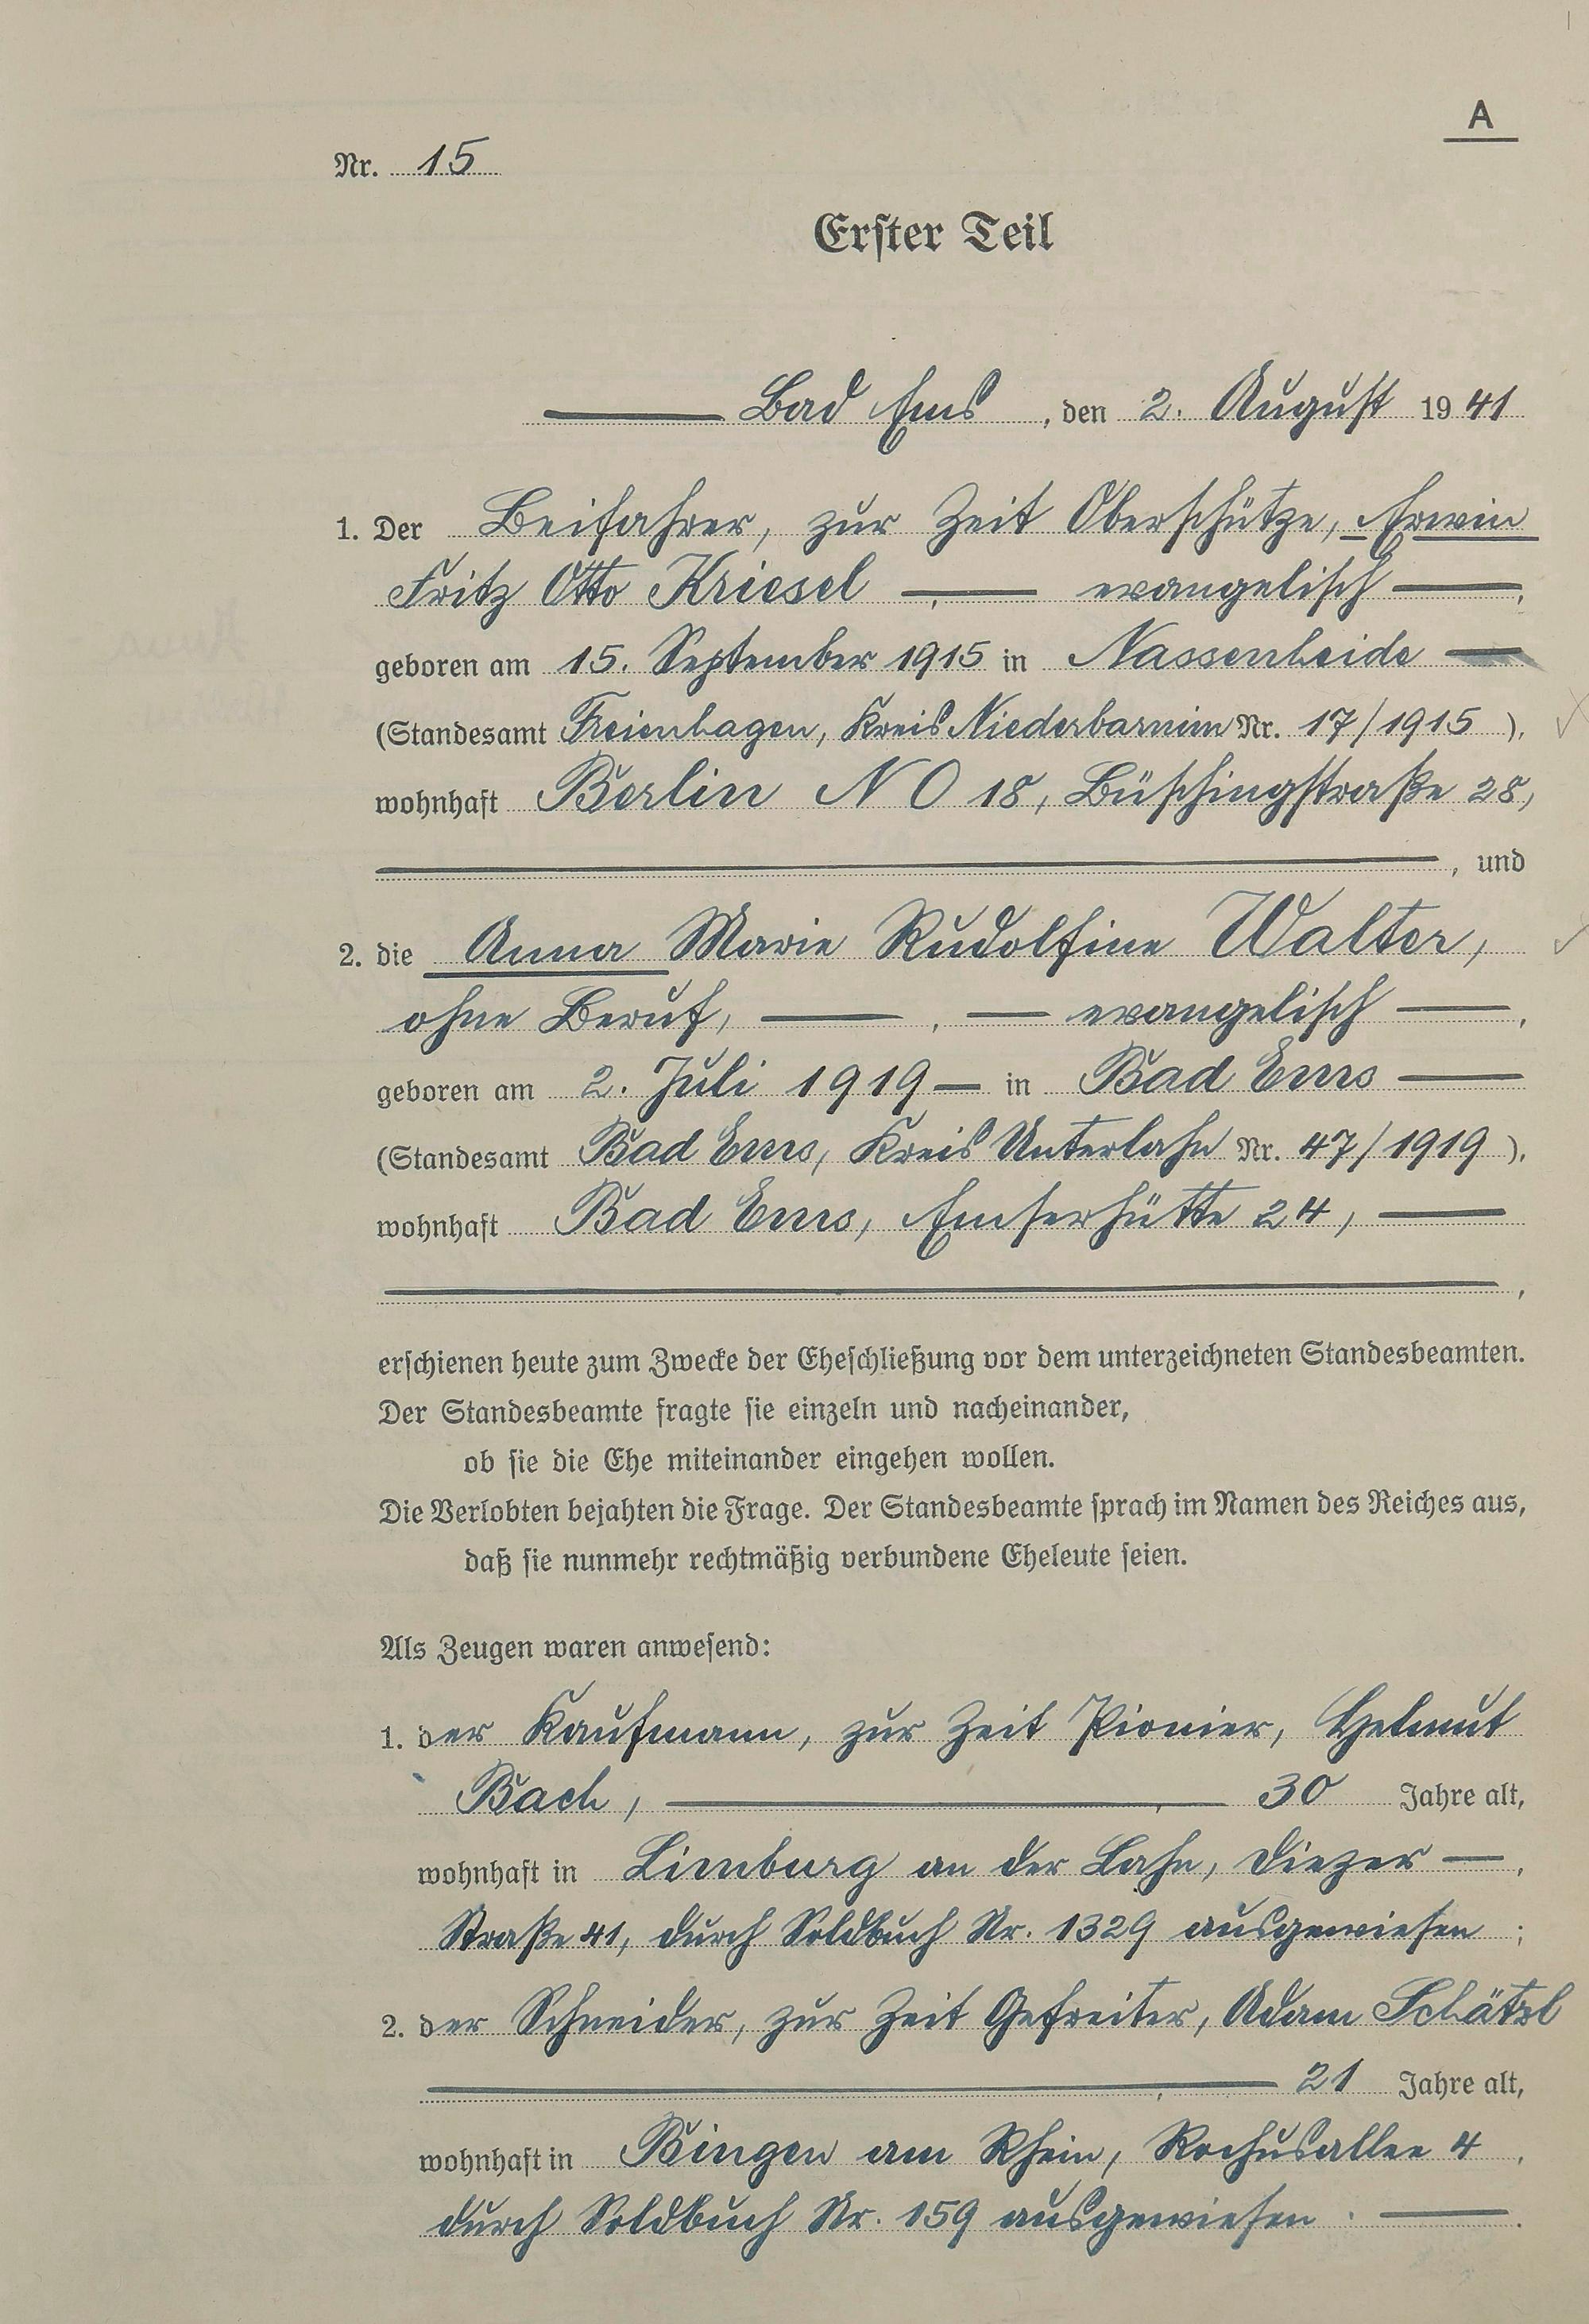 A
Nr. 15
Erster Teil
Bad Ems, den 2. August 1941
1. Der Beifahrer, zur Zeit Oberschütze, Erwin
Fritz Otto Kriesel — , — evangelisch —,
geboren am 15. September 1915 in Nassenheide —
(Standesamt Freienhagen, Kreis Niederbarnim Nr. 17/1915 ),
wohnhaft Berlin N O 18, Büschingstraße 28,
, und
2. die Anna Marie Rudolfine Walter,
ohne Beruf, — , — evangelisch —,
geboren am 2. Juli 1919 — in Bad Ems —
(Standesamt Bad Ems, Kreis Unterlahn Nr. 47/1919 ),
wohnhaft Bad Ems, Emserhütte 24, —
,
erschienen heute zum Zwecke der Eheschließung vor dem unterzeichneten Standesbeamten.
Der Standesbeamte fragte sie einzeln und nacheinander,
ob sie die Ehe miteinander eingehen wollen.
Die Verlobten bejahten die Frage. Der Standesbeamte sprach im Namen des Reiches aus,
daß sie nunmehr rechtmäßig verbundene Eheleute seien.
Als Zeugen waren anwesend:
1. der Kaufmann, zur Zeit Pionier, Helmut
Bach, — , — 30 Jahre alt,
wohnhaft in Limburg an der Lahn, Diezer —,
Straße 41, durch Soldbuch Nr. 1329 ausgewiesen ;
2. der Schneider, zur Zeit Gefreiter, Adam Schätzl
— , — 21 Jahre alt,
wohnhaft in Bingen am Rhein, Rochusallee 4 ,
durch Soldbuch Nr. 159 ausgewiesen . — .